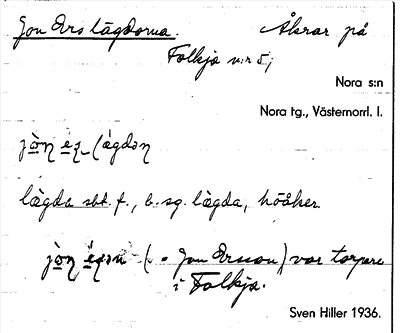 Jon Ers lägdorna. Åkrar på
Folkja n:r 5;
Nora s:n
Nora tg., Västernorrl. l.
jo̱n e̱ʒ_lägdən
lägda sbt. f., b. sg. lägda,
jo̱n (= Jon Ersson) var torpare
i Folkja.
Sven Hiller 1936.